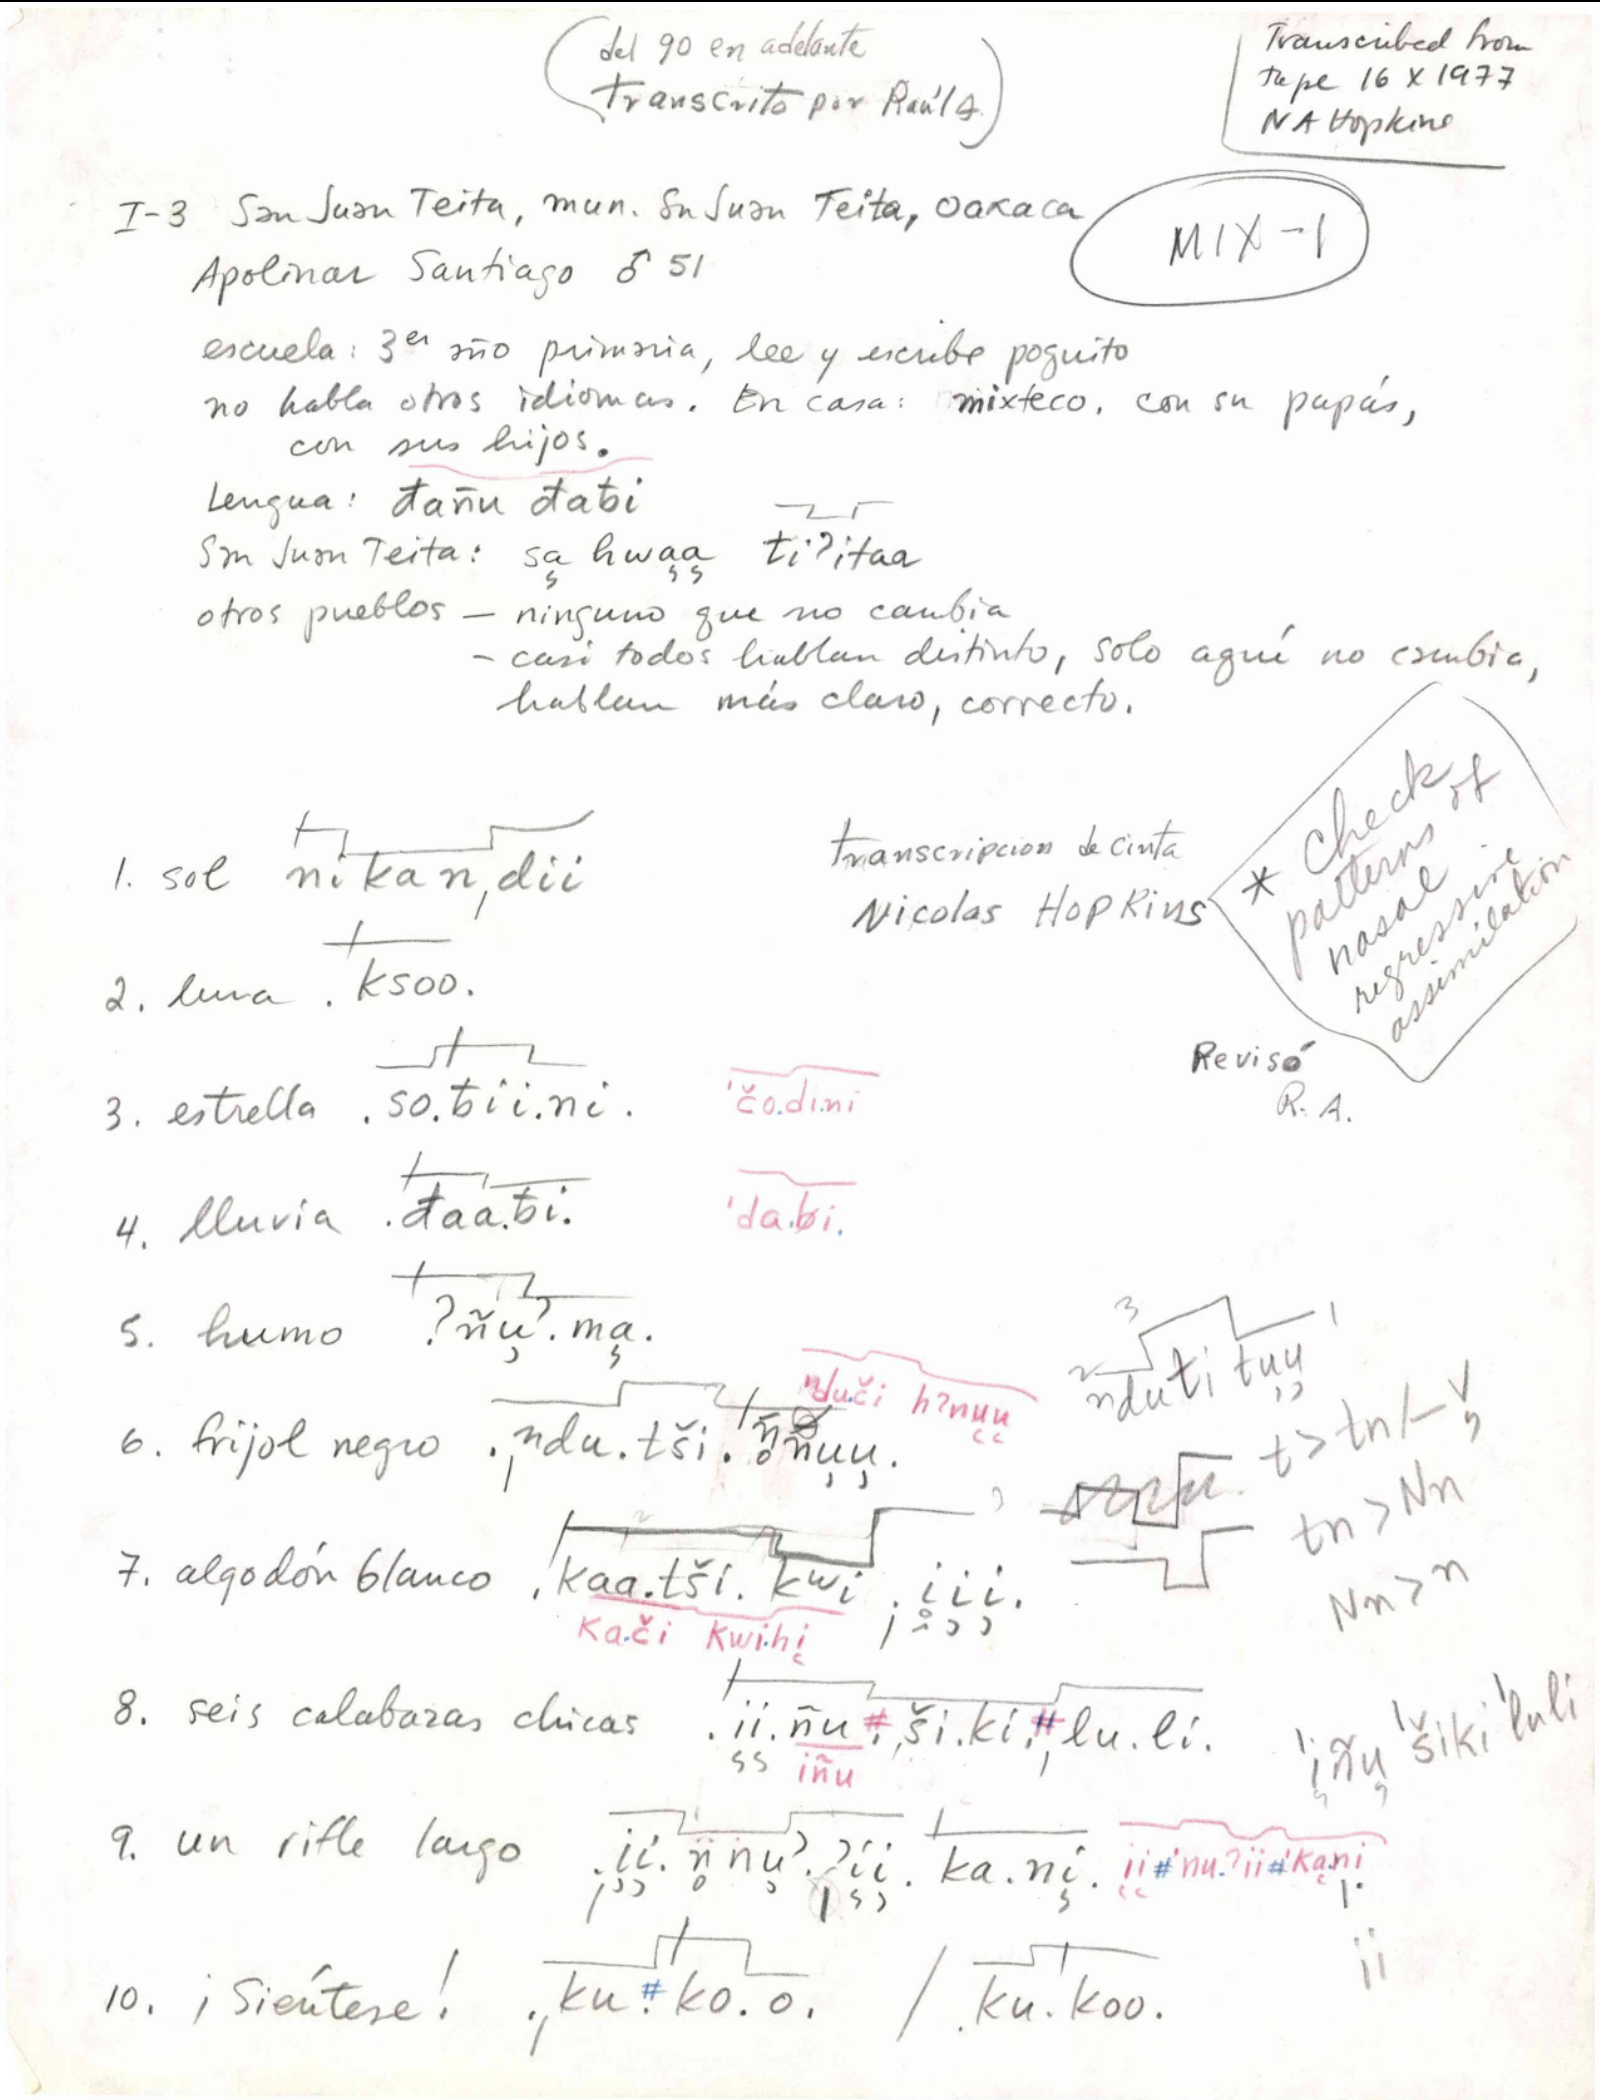 (del 90 en adelante
transcrito por Raúl A.)
Transcribed from
tape 16 X 1977
N A Hopkins
I-3 San Juan Teita, mun. Sn Juan Teita, Oaxaca
MIX-1
Apolinar Santiago ♂ 51
escuela: 3er año primaria, lee y escribe poquito
no habla otros idiomas. En casa: mixteco. con su papás,
con sus hijos.
Lengua: đañu đaƀi
San Juan Teita: są hwąą tiʔitaa
otros pueblos – ninguno que no cambia
- casi todos hablan distinto, solo aquí no cambia,
hablan más claro, correcto.
* Check
patterns of
nasal
regressive
assimilation
transcripcion de cinta
Nicolas Hopkins
1. sol nikan,dii
2. luna .ksoo.
Revisó
R. A.
3. estrella .so.ƀii.ni. 'čo.di.ni
4. lluvia .đaa.ƀi. 'da.ƀi.
5. humo ʔñų́ʔ.mą.
6. frijol negro .ˌndu.tši. ñųų.
nduči hʔnųų
3 1
2
nduti tųų
t > tn / – V̨
tn > Nn
Nn > n
7. algodón blanco .kaa.tši. kwi .ˌįįį.
ka.či kwi.hį
8. seis calabazas chicas .įį.ñu #.ˌši.ki.#ˌlu.li.
iñu
'įñų 'šiki 'luli
9. un rifle largo .ˌįį.n̥nųʔ.ˌʔįį. ka.nį. įį#'nu.ʔii#'ką.ni
ii
10. ¡Siéntese! .ˌku.#ko.o. / .ku.koo.